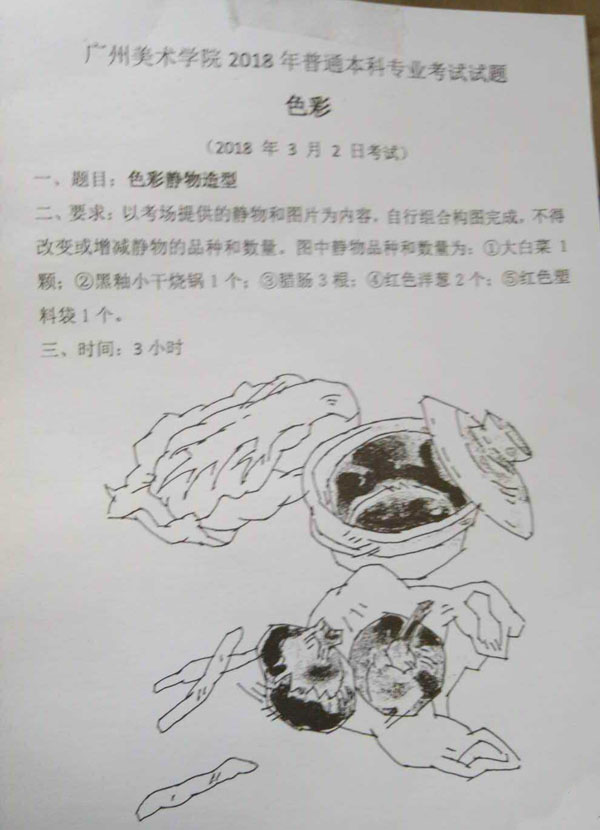 广州美术学院 2018 年普通本科专业考试试题
色彩
（2018 年 3 月 2 日考试）
一、题目：色彩静物造型
二、要求：以考场提供的静物和图片为内容，自行组合构图完成，不得
改变或增减静物的品种和数量。图中静物品种和数量为：①大白菜 1
颗；②黑釉小干烧锅 1 个；③腊肠 3 根；④红色洋葱 2 个；⑤红色塑
料袋 1 个。
三、时间：3 小时